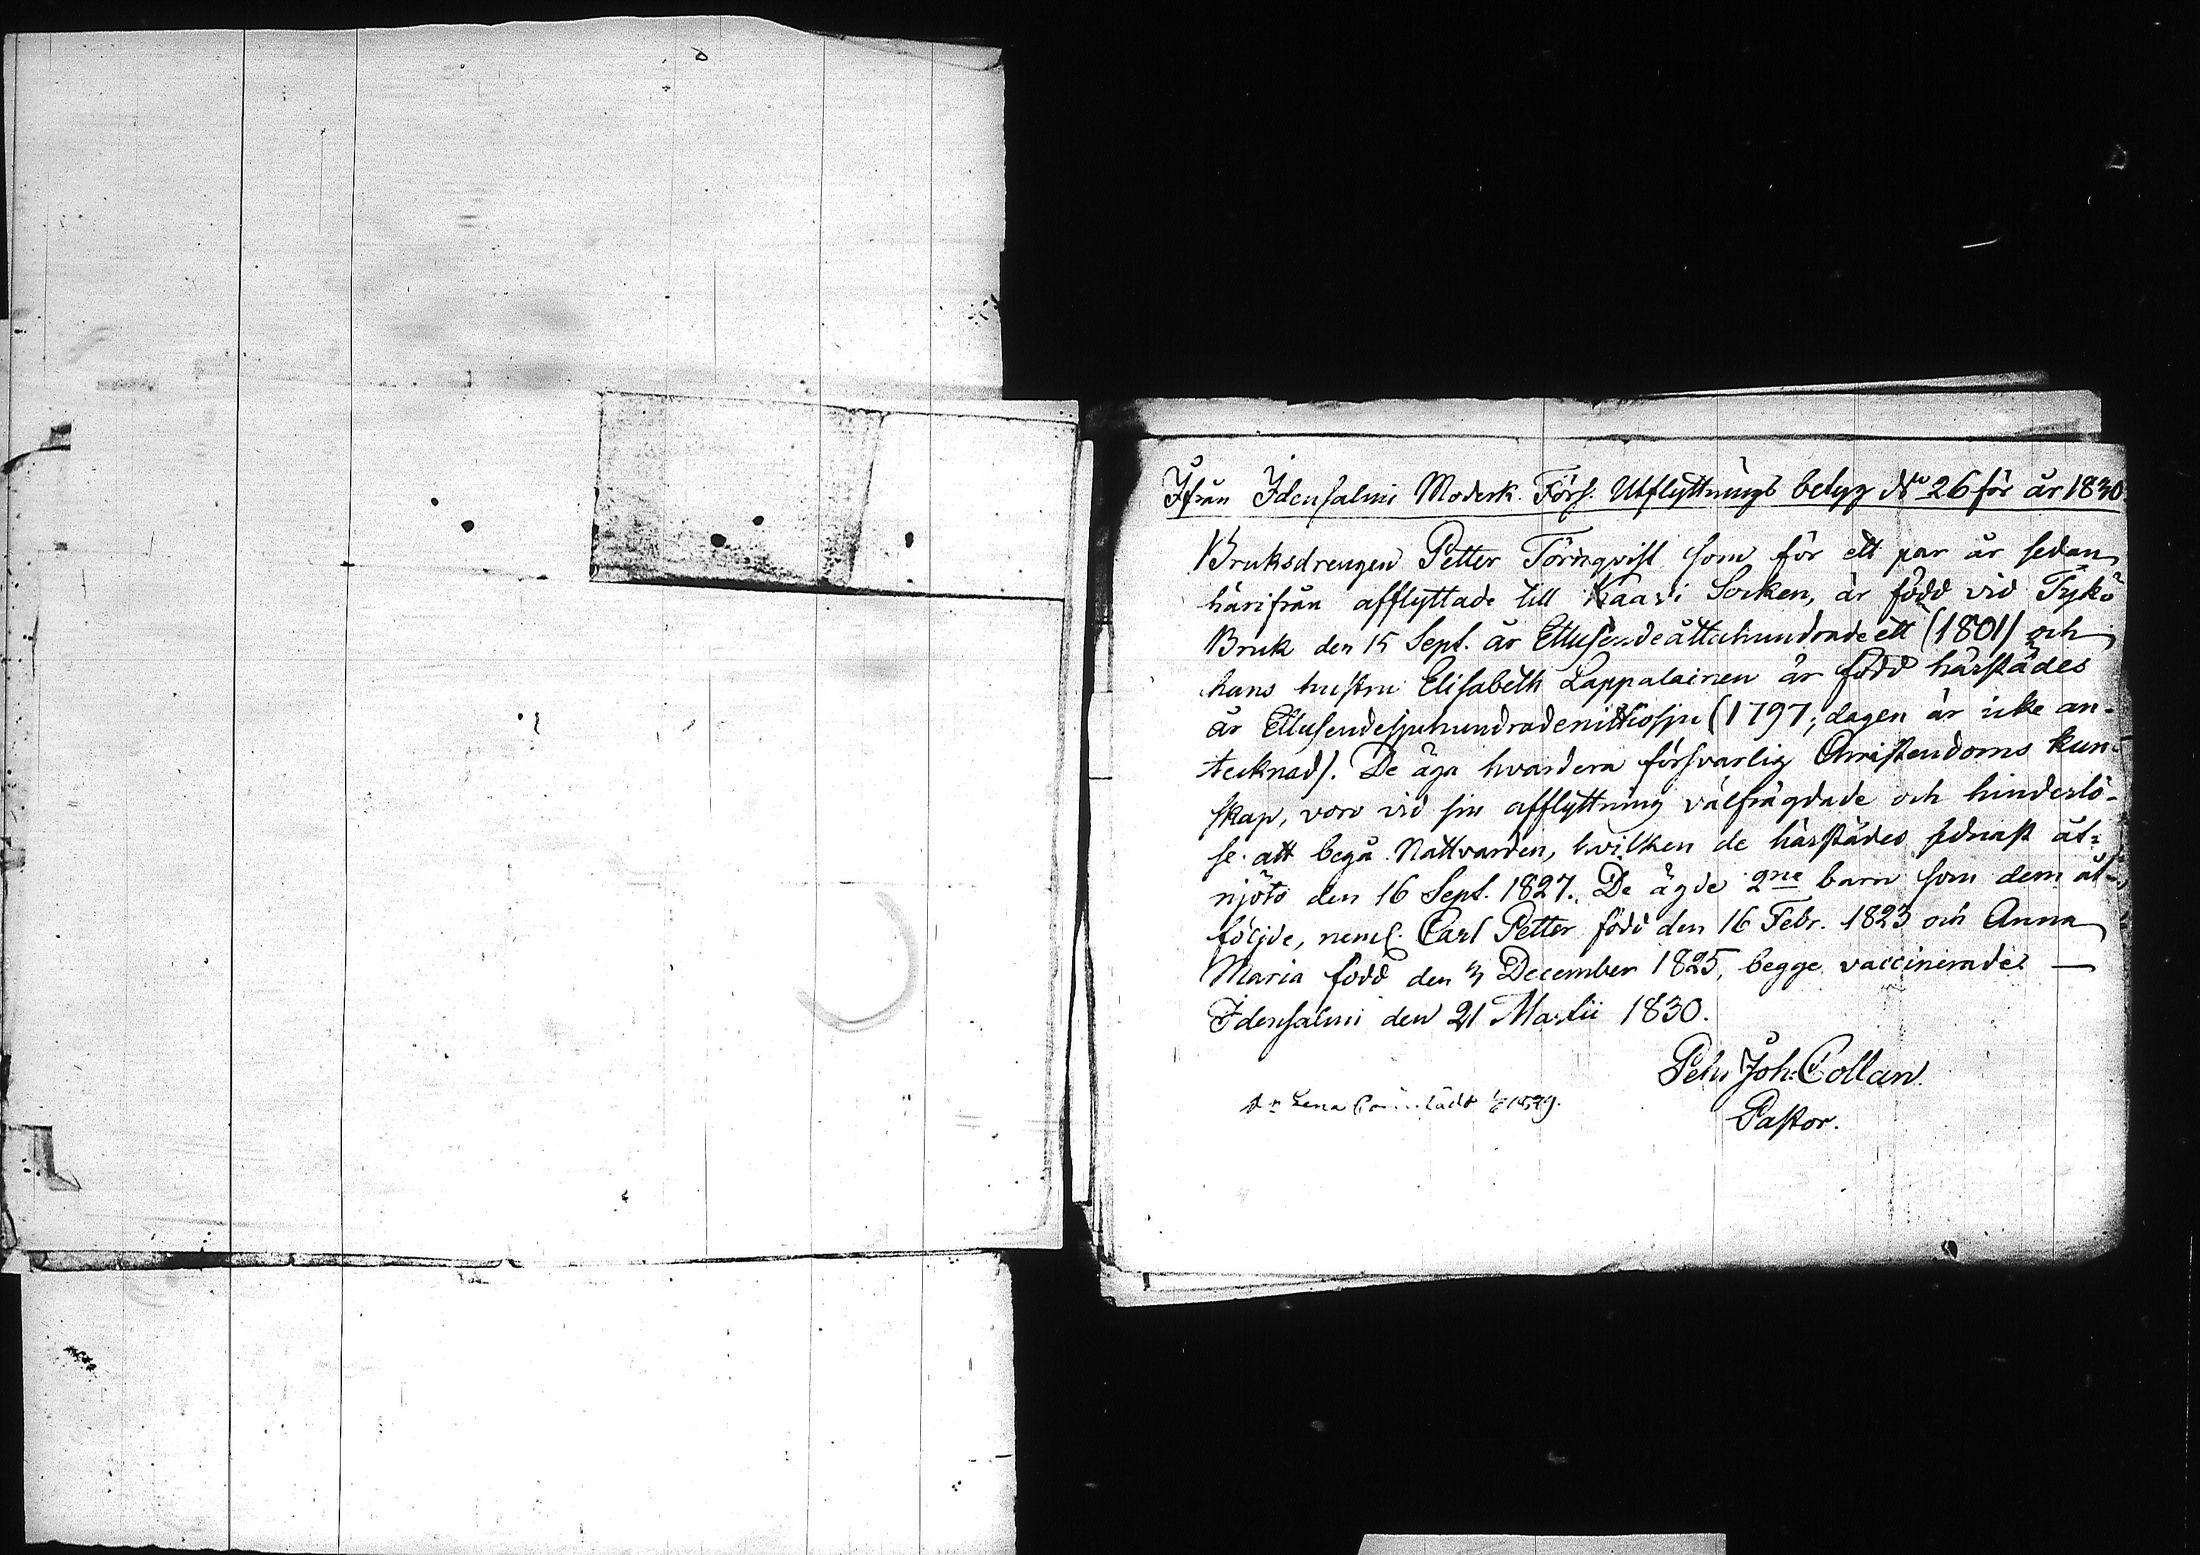 Ifrån Idensalmi Moderk. Förs. Utflyttnings betyg No 26 för år 1830
Bruksdrengen Petter Törnqvist som för ett par år sedan
härifrån afflyttade till Kaavi Socken, är född vid Tykö
Bruk den 15 Sept. år Ettusendeåttahundradeett (1801) och
hans hustru Elisabeth Lappalainen är född härstädes
år Ettusendesjuhundradenittiosju (1797; dagen är icke an-
tecknad). De äga hvardera försvarlig Christendoms kun-
skap, voro vid sin afflyttning välfrägdade och hinderlö-
se att begå Nattvarden, hvilken de härstädes sednast åt-
njöto den 16 Sept. 1827. De ägde 2ne barn som dem åt-
följde, neml. Carl Petter född den 16 Febr. 1823 och Anna
Maria född den 3 December 1825, begge vaccinerade. —
Idensalmi den 21 Martii 1830.
Petr Joh: Collan.
Pastor.
Lena